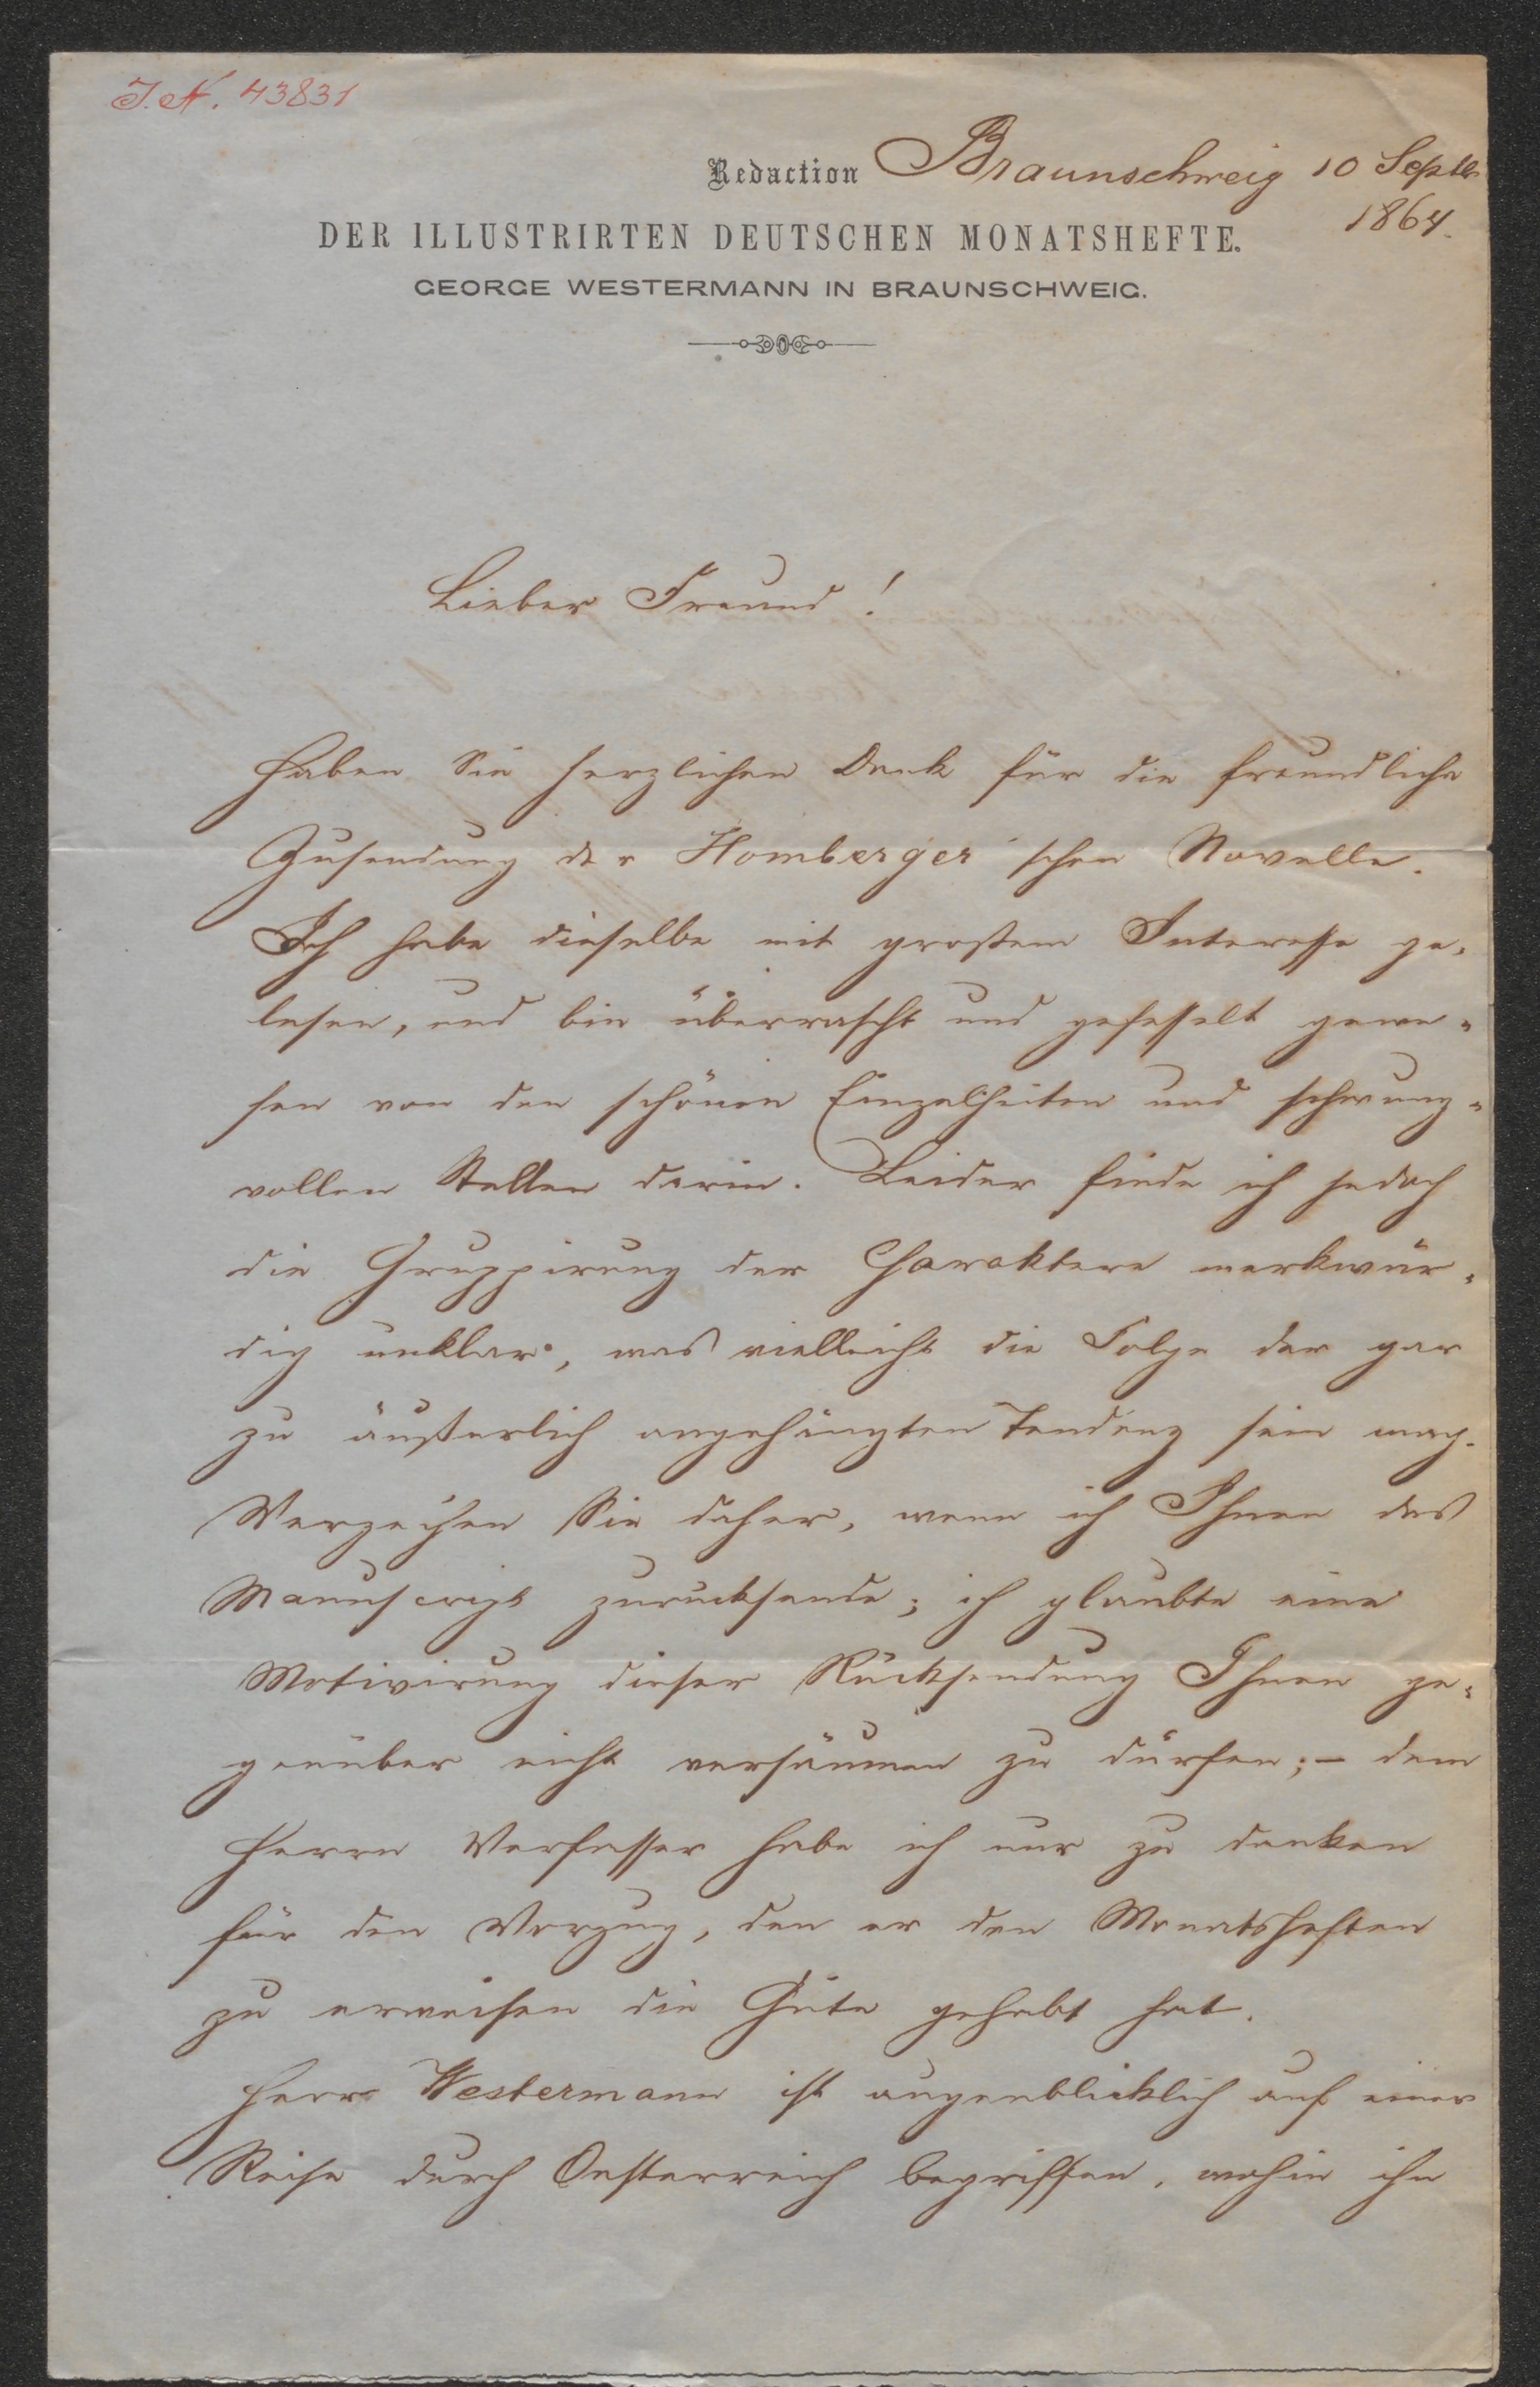 J.N. 43831
Redaction Braunschweig 10 Septb.
1864.
DER ILLUSTRIRTEN DEUTSCHEN MONATSHEFTE.
GEORGE WESTERMANN IN BRAUNSCHWEIG.
Lieber Freund!
Haben Sie herzlichen Dank für die freundliche
Zusendung der Homberger'schen Novelle.
Ich habe dieselbe mit großem Interesse ge-
lesen, und bin überrascht und gefesselt gewe-
sen von den schönen Einzelheiten und schwung-
vollen Stellen darin. Leider finde ich jedoch
die Gruppirung der Charaktere merkwür-
dig unklar, was vielleicht die Folge der gar
zu äußerlich angehängten Tendenz sein mag.
Verzeihen Sie daher, wenn ich Ihnen das
Manuscript zurücksende; ich glaubte eine
Motivirung dieser Rücksendung Ihnen ge-
genüber nicht versäumen zu dürfen; – dem
Herrn Verfasser habe ich nur zu danken
für den Vorzug, den er den Monatsheften
zu erweisen die Güte gehabt hat.
Herr Westermann ist augenblicklich auf einer
Reise durch Oesterreich begriffen, wohin ihn